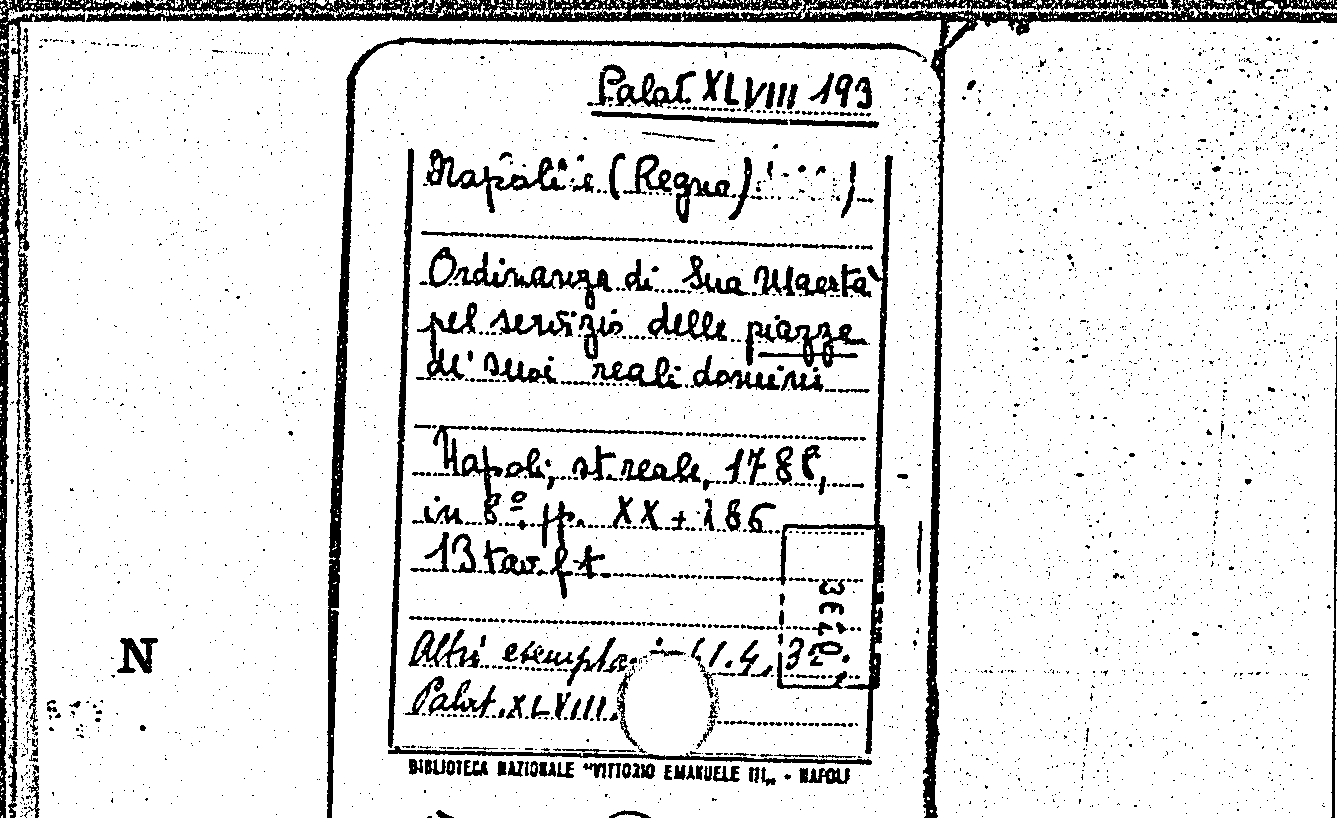 Palat. XLVIII 193
Napoli (Regno)
Ordinanza di Sua Maestà
pel servizio delle piazze
de' suoi reali domini
Napoli, st. reale, 1788,
in 8º. pp. XX + 186
13 tav. f. t.
Altri
Palat. XLVIII.
N
BIBLIOTECA NAZIONALE "VITTORIO EMANUELE III„ - NAPOLI